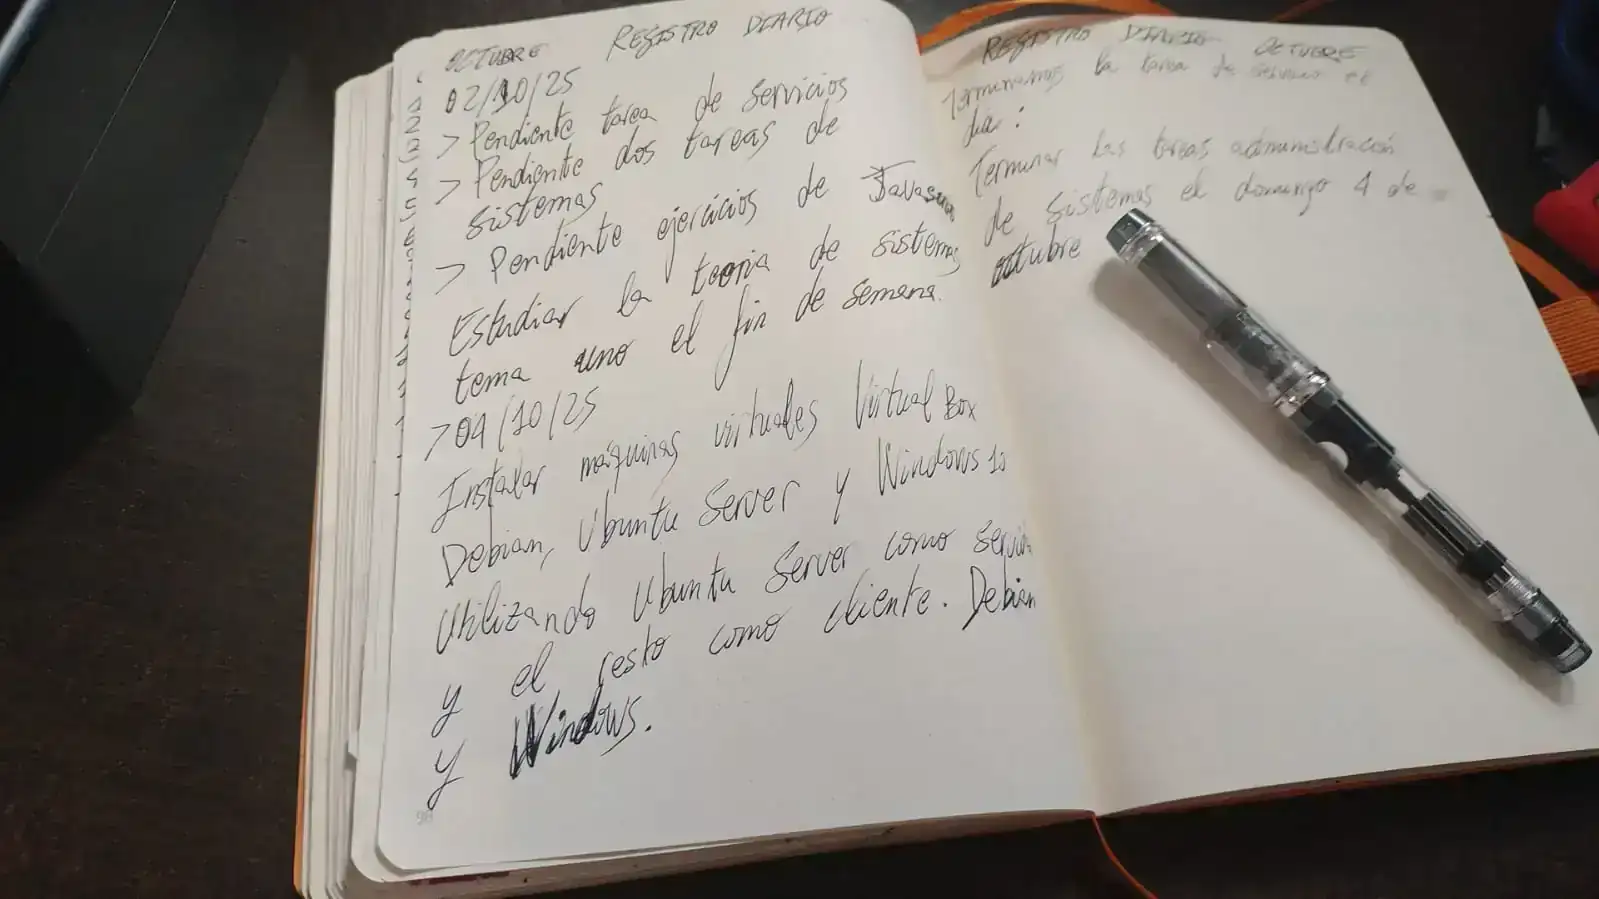 OCTUBRE REGISTRO DIARIO
02/10/25
> Pendiente tarea de servicios
> Pendiente dos tareas de
sistemas
> Pendiente ejercicios de
Estudiar la teoria de sistemas
tema uno el fin de semana.
>04/10/25
Instalar máquinas virtuales Virtual Box
Debian, Ubuntu Server y Windows 10
Utilizando Ubuntu Server como
y el resto como cliente. Debian
y Windows.
REGISTRO DIARIO OCTUBRE
Terminamos la tarea de servicio el
dia:
Terminar las tareas administración
de sistemas el domingo 4 de
octubre